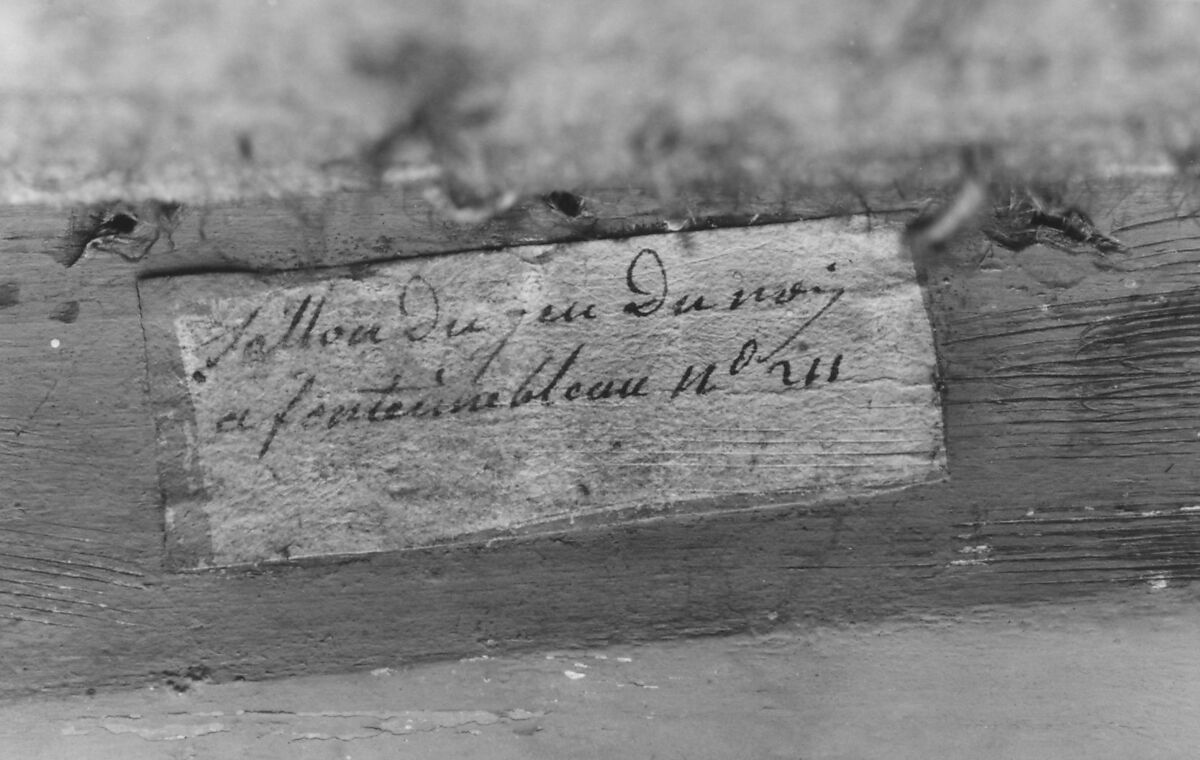 Sallon du jeu Du roy
a fonteinebleau No 211